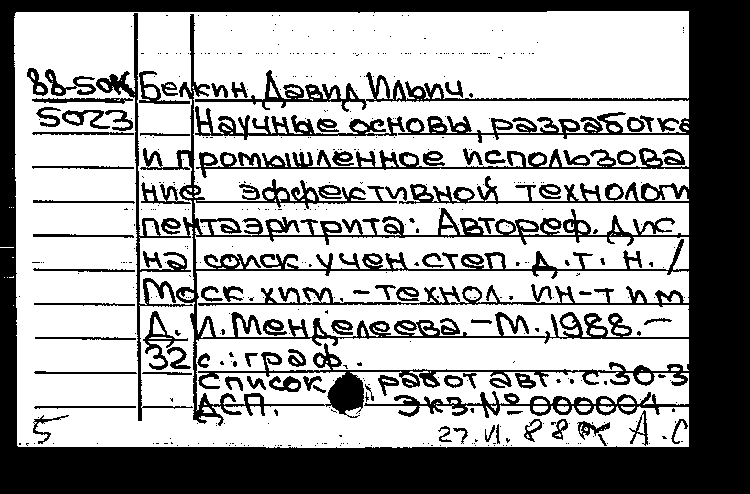 88-50К Белкин, Давид Ильич.
5023 Научные основы, разработка
и промышленное использова
ние эффективной технологи
пентаэритрита: Автореф. дис.
на соиск. учен. степ. д. т. н. /
Моск. хим. - технол. ин-т им
Д. И. Менделеева. - М., 1988. -
32 с. : граф.
Список работ авт.: с. 30-3
ДСП. Экз. № 000004.
5 27.VI.88 А.С